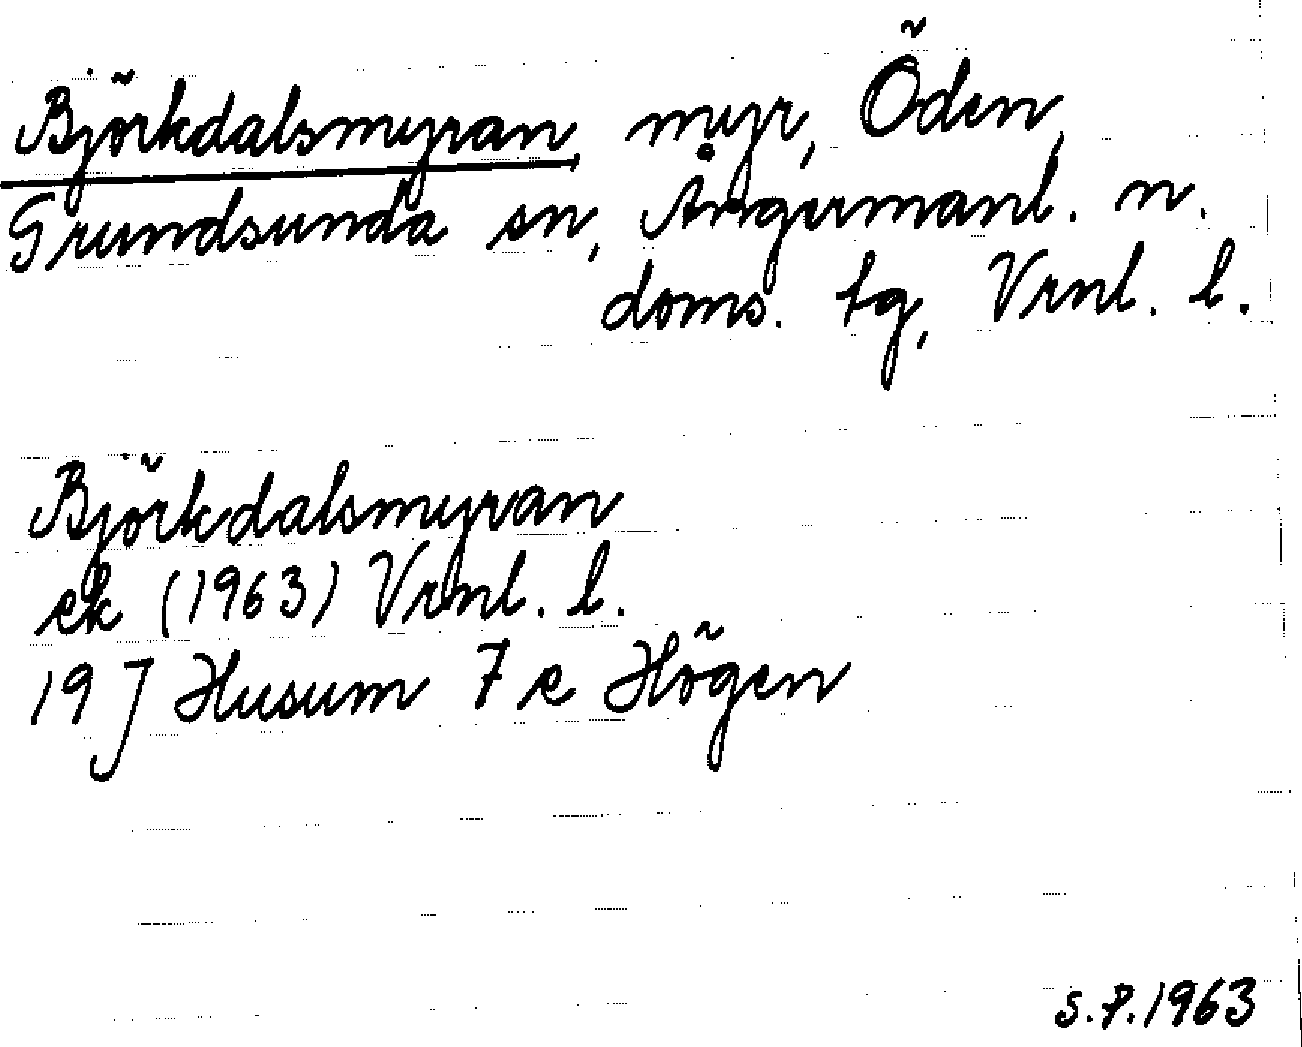 Björkdalsmyran, myr, Öden,
Grundsunda sn, Ångermanl. n.
doms. tg, Vrnl. l.
Björkdalsmyran
ek (1963) Vrnl. l.
19 J Husum 7 e Högen
S.P. 1963